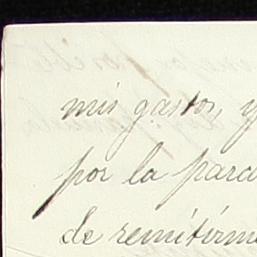 mis gastos, y
por la para
de remitirme